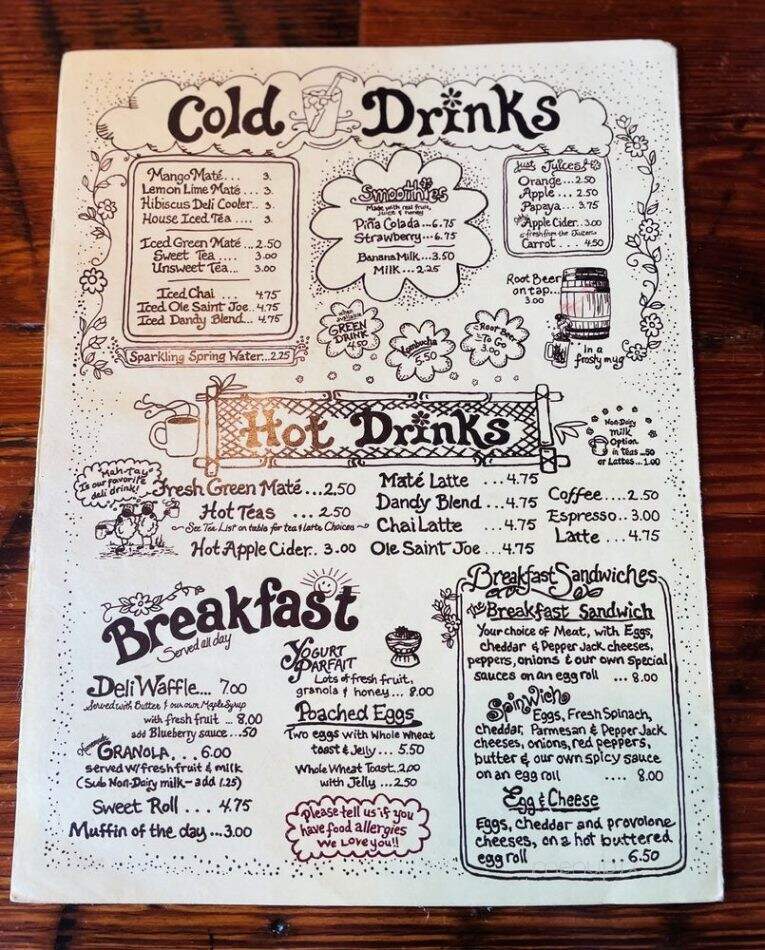 Cold Drinks
Mango Maté.... 3.
Lemon Lime Maté... 3.
Hibiscus Deli Cooler.. 3.
House Iced Tea.... 3.
Iced Green Maté...2.50
Sweet Tea.... 3.00
Unsweet Tea... 3.00
Iced Chai ... 4.75
Iced Ole Saint Joe..4.75
Iced Dandy Blend...4.75
Sparkling Spring Water...2.25
Smoothies
Made with real fruit,
juice & honey
Piña Colada...6.75
Strawberry...6.75
Banana Milk...3.50
Milk....2.25
Just Juices
Orange...2.50
Apple...2.50
Papaya... 3.75
Apple Cider..3.00
Carrot.... 4.50
when available
GREEN
DRINK
4.50
Kombucha
6.50
Root Beer
To Go
3.00
Root Beer
on tap...
3.00
in a
frosty mug
Hot Drinks
Non-Dairy
Milk
Option
in Teas ..50
or Lattes...1.00
"Mah-Tay"
Is our favorite
deli drink!
Fresh Green Maté...2.50
Hot Teas ... 2.50
See Tea List on table for tea & latte Choices
Hot Apple Cider.. 3.00
Maté Latte ...4.75
Dandy Blend ...4.75
Chai Latte ...4.75
Ole Saint Joe ...4.75
Coffee....2.50
Espresso..3.00
Latte ... 4.75
Breakfast
Served all day
Deli Waffle... 7.00
Served with Butter & our own Maple Syrup
with fresh fruit ... 8.00
add Blueberry sauce...50
Homemade
GRANOLA... 6.00
served w/fresh fruit & milk
(Sub Non-Dairy milk-add 1.25)
Sweet Roll .... 4.75
Muffin of the day...3.00
Yogurt
Parfait
Lots of fresh fruit,
granola & honey... 8.00
Poached Eggs
Two eggs with Whole Wheat
toast & Jelly... 5.50
Whole Wheat Toast..2.00
with Jelly ...2.50
Please tell us if you
have food allergies
We Love you!!
Breakfast Sandwiches
The Breakfast Sandwich
Your choice of Meat, with Eggs,
cheddar & Pepper Jack cheeses,
peppers, onions & our own special
sauces on an egg roll ... 8.00
Spinwich
Eggs, Fresh Spinach,
cheddar, Parmesan & Pepper Jack
cheeses, onions, red peppers,
butter & our own spicy sauce
on an egg roll .... 8.00
Egg & Cheese
Eggs, cheddar and provolone
cheeses, on a hot buttered
egg roll ....6.50